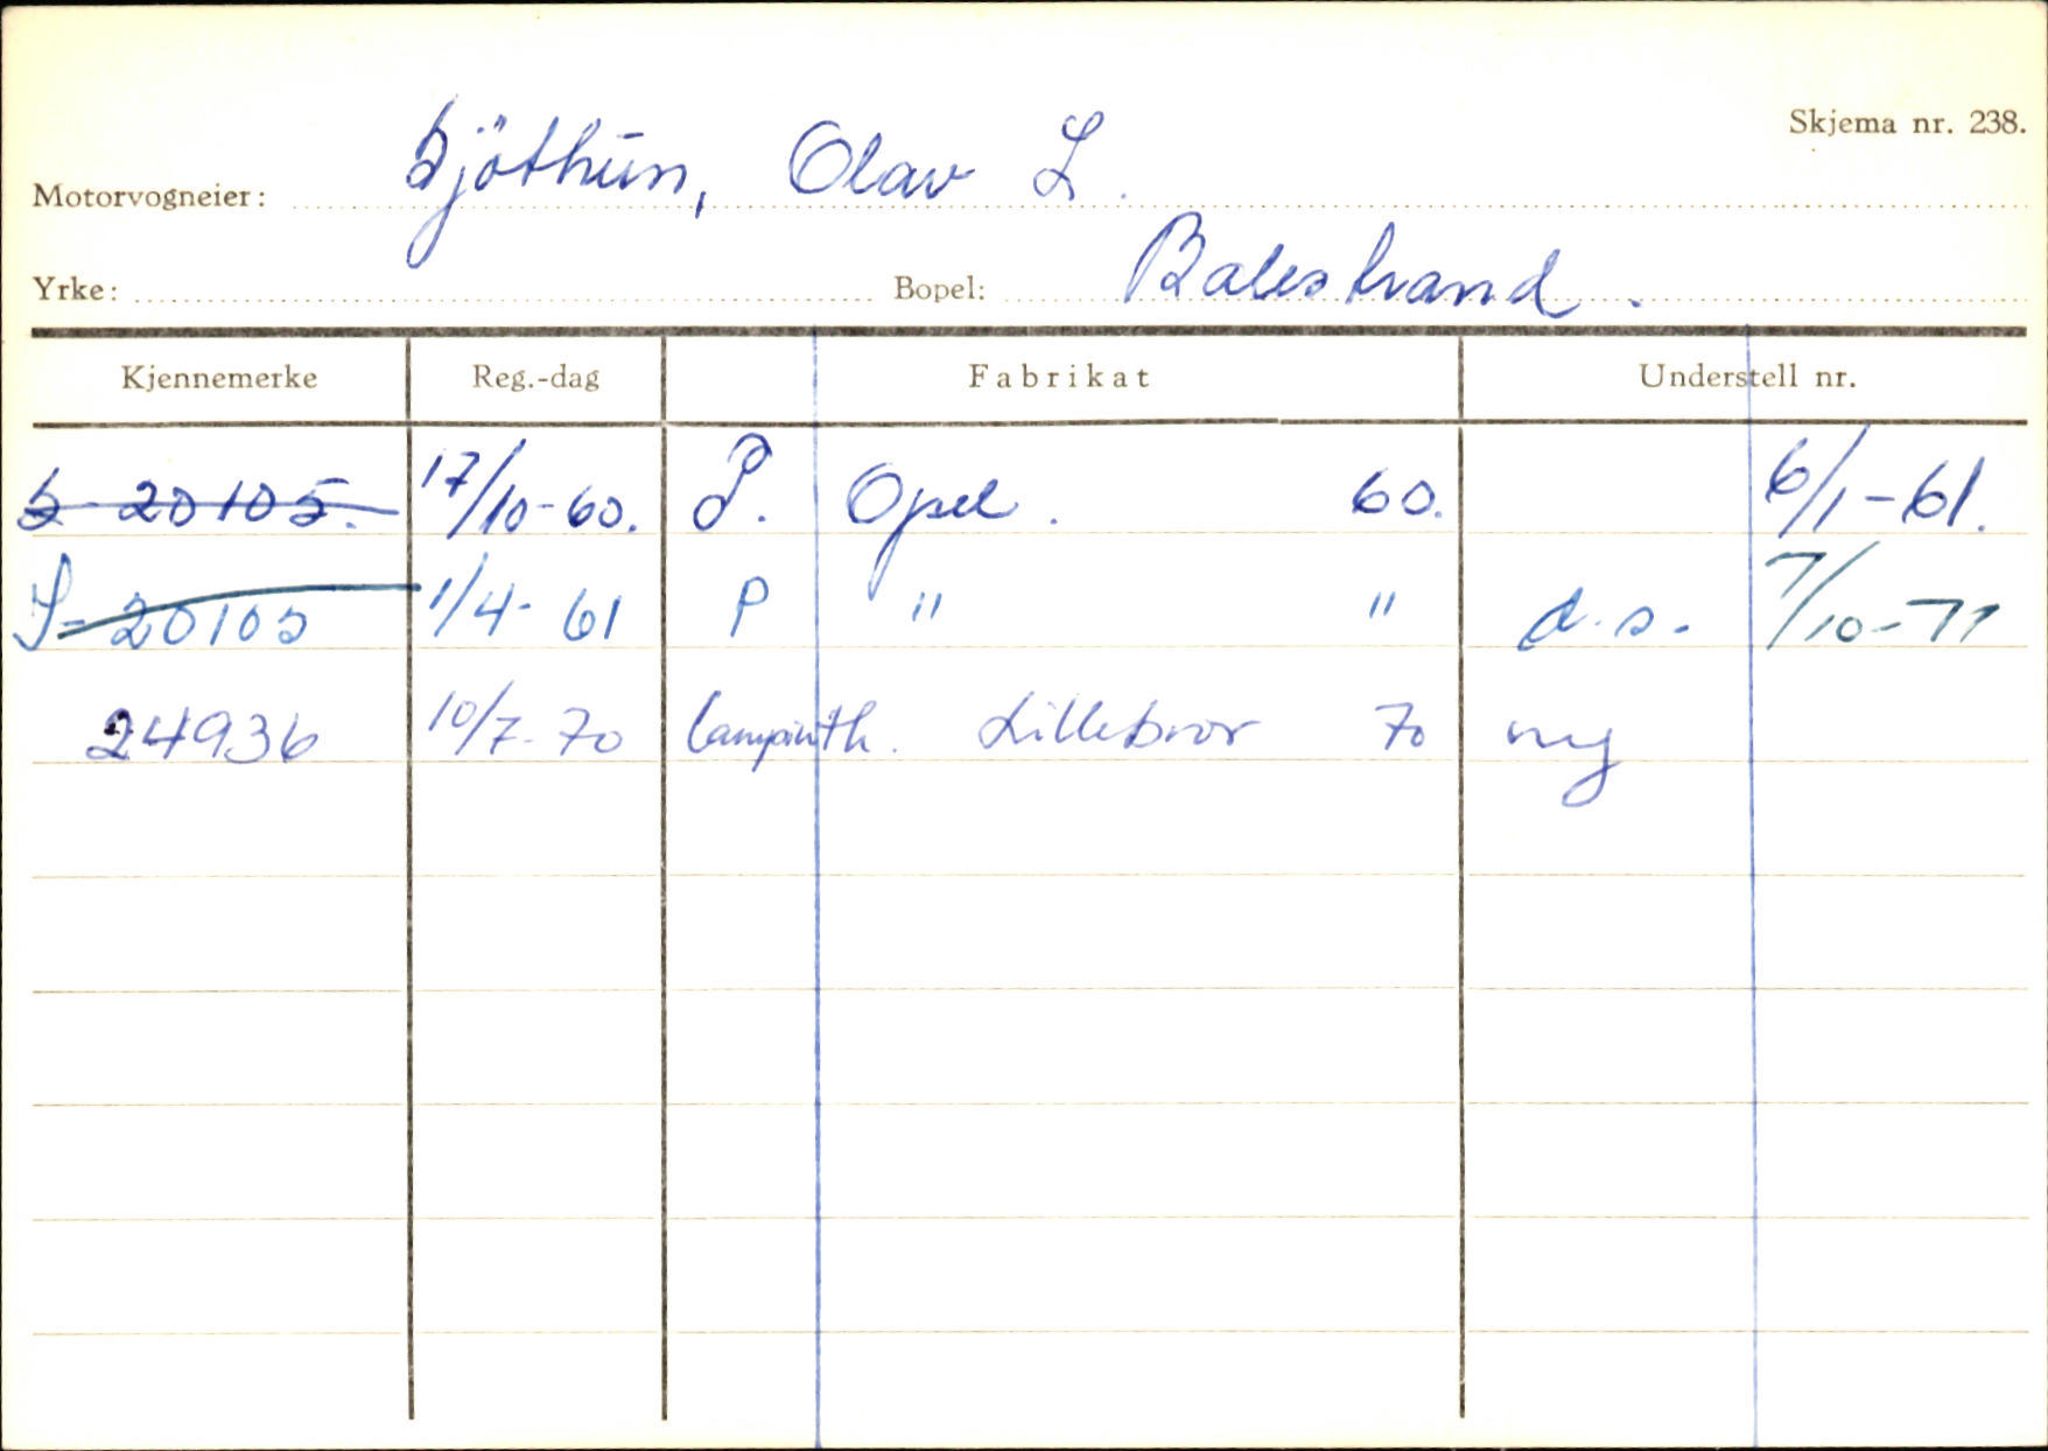 Skjema nr. 238.
Motorvogneier: Sjöthun, Olav L.
Yrke: Bopel: Balestrand.
Kjennemerke Reg.-dag Fabrikat Understell nr.
S-20105. 17/10-60. P. Opel. 60. 6/1-61.
S-20105 1/4-61 P " " d.s. 7/10-71
24936 10/7-70 Campinth. Lillebror 70 ny